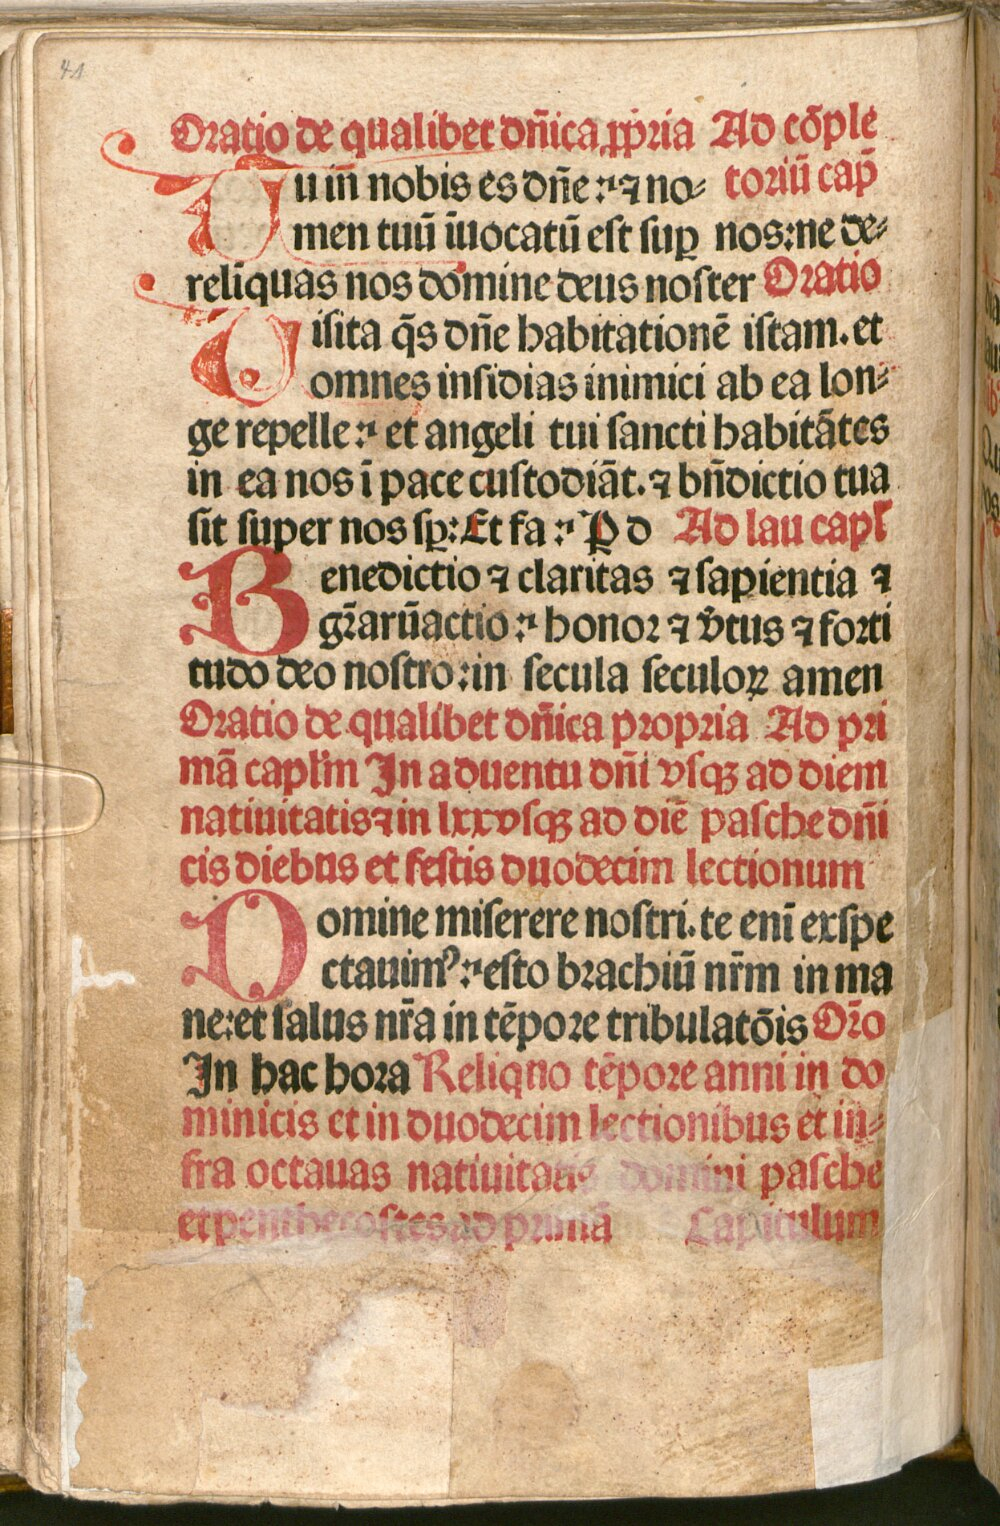 41
Oratio de qualibet dn̄ica ꝓpria Ad cōple
Tu in̄ nobis es dn̄e: ⁊ no⸗ toriū cap̄
men tuū īuocatū est suꝑ nos: ne de⸗
relīquas nos domine deus noster Oratio
Visita q̄s dn̄e habitationē istam. et
omnes insidias inimici ab ea lon⸗
ge repelle: et angeli tui sancti habitātes
in ea nos ī pace custodiāt. ⁊ bn̄dictio tua
sit super nos sꝑ: Et fa: P d Ad lau capl̄
Benedictio ⁊ claritas ⁊ sapientia ⁊
gr̄arūactio: honor ⁊ v̄tus ⁊ forti
tudo deo nostro: in secula seculoꝝ amen
Oratio de qualibet dn̄ica propria Ad pri
mā capl̄m In aduentu dn̄i vsqꝫ ad diem
natiuitatis ⁊ in lxx vsqꝫ ad diē pasche dn̄i
cis diebus et festis duodecim lectionum
Domine miserere nostri. te enī exspe
ctauimꝰ: esto brachiū nr̄m in ma
ne: et salus nr̄a in tēpore tribulatōis Or̄o
In hac hora Reliquo tēpore anni in do
minicis et in duodecim lectionibus et in⸗
fra octauas natiuitatis domini pasche
et penthecostes ad primā Capitulum